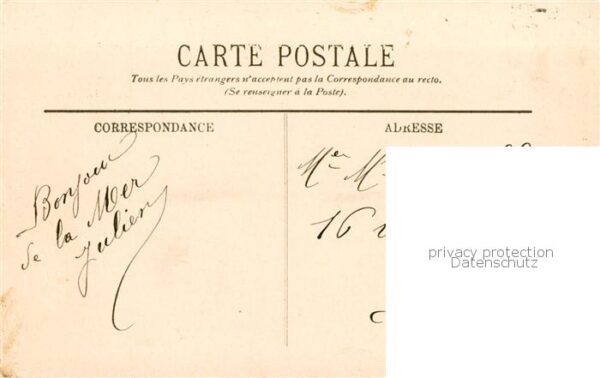 CARTE POSTALE
Tous les Pays étrangers n'acceptent pas la Correspondance au recto.
(Se renseigner à la Poste).
CORRESPONDANCE
Bonjour
de la Mer
Julien
ADRESSE
16
privacy protection
Datenschutz